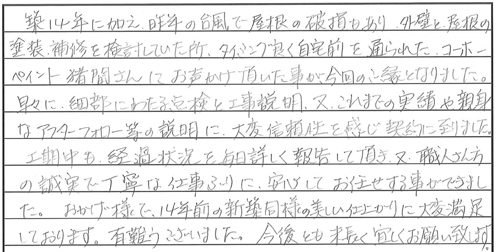 築14年に加え、昨年の台風で屋根の破損もあり、外壁と屋根の
塗装、補修を検討していた所、タイミング良く自宅前を通られた、ユーホー
ペイント猪間さんにお声かけ頂いた事が今回のご縁となりました。
早々に、細部にわたる点検と工事説明、又、これまでの実績や親身
なアフターフォロー等の説明に、大変信頼性を感じ契約に到りました。
工期中も、経過状況を毎日詳しく報告して頂き、又、職人さん方
の誠実で丁寧な仕事ぶりに、安心してお任せする事ができまし
た。おかげ様で、14年前の新築同様の美しい仕上がりに大変満足
しております。有難うございました。今後とも末長く宜しくお願い致します